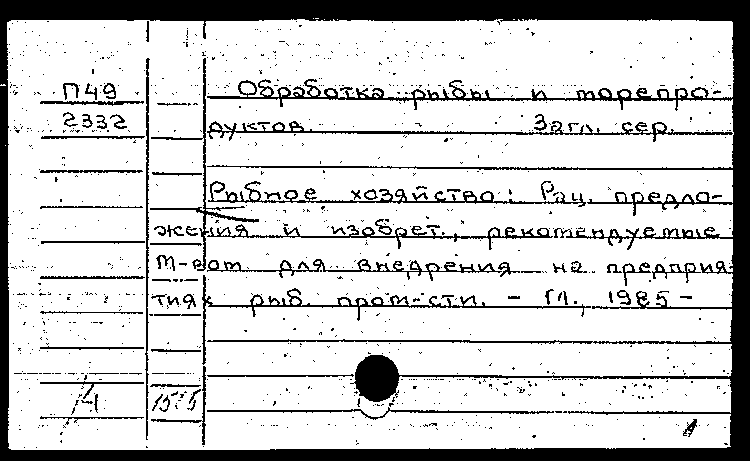 П49
2332
Обработка рыбы и морепро-
дуктов. Загл. сер.
Рыбное хозяйство: Рац. предло-
жения и изобрет., рекомендуемые
М-вом для внедрения на предприя-
тиях рыб. пром-сти. - М., 1985 -